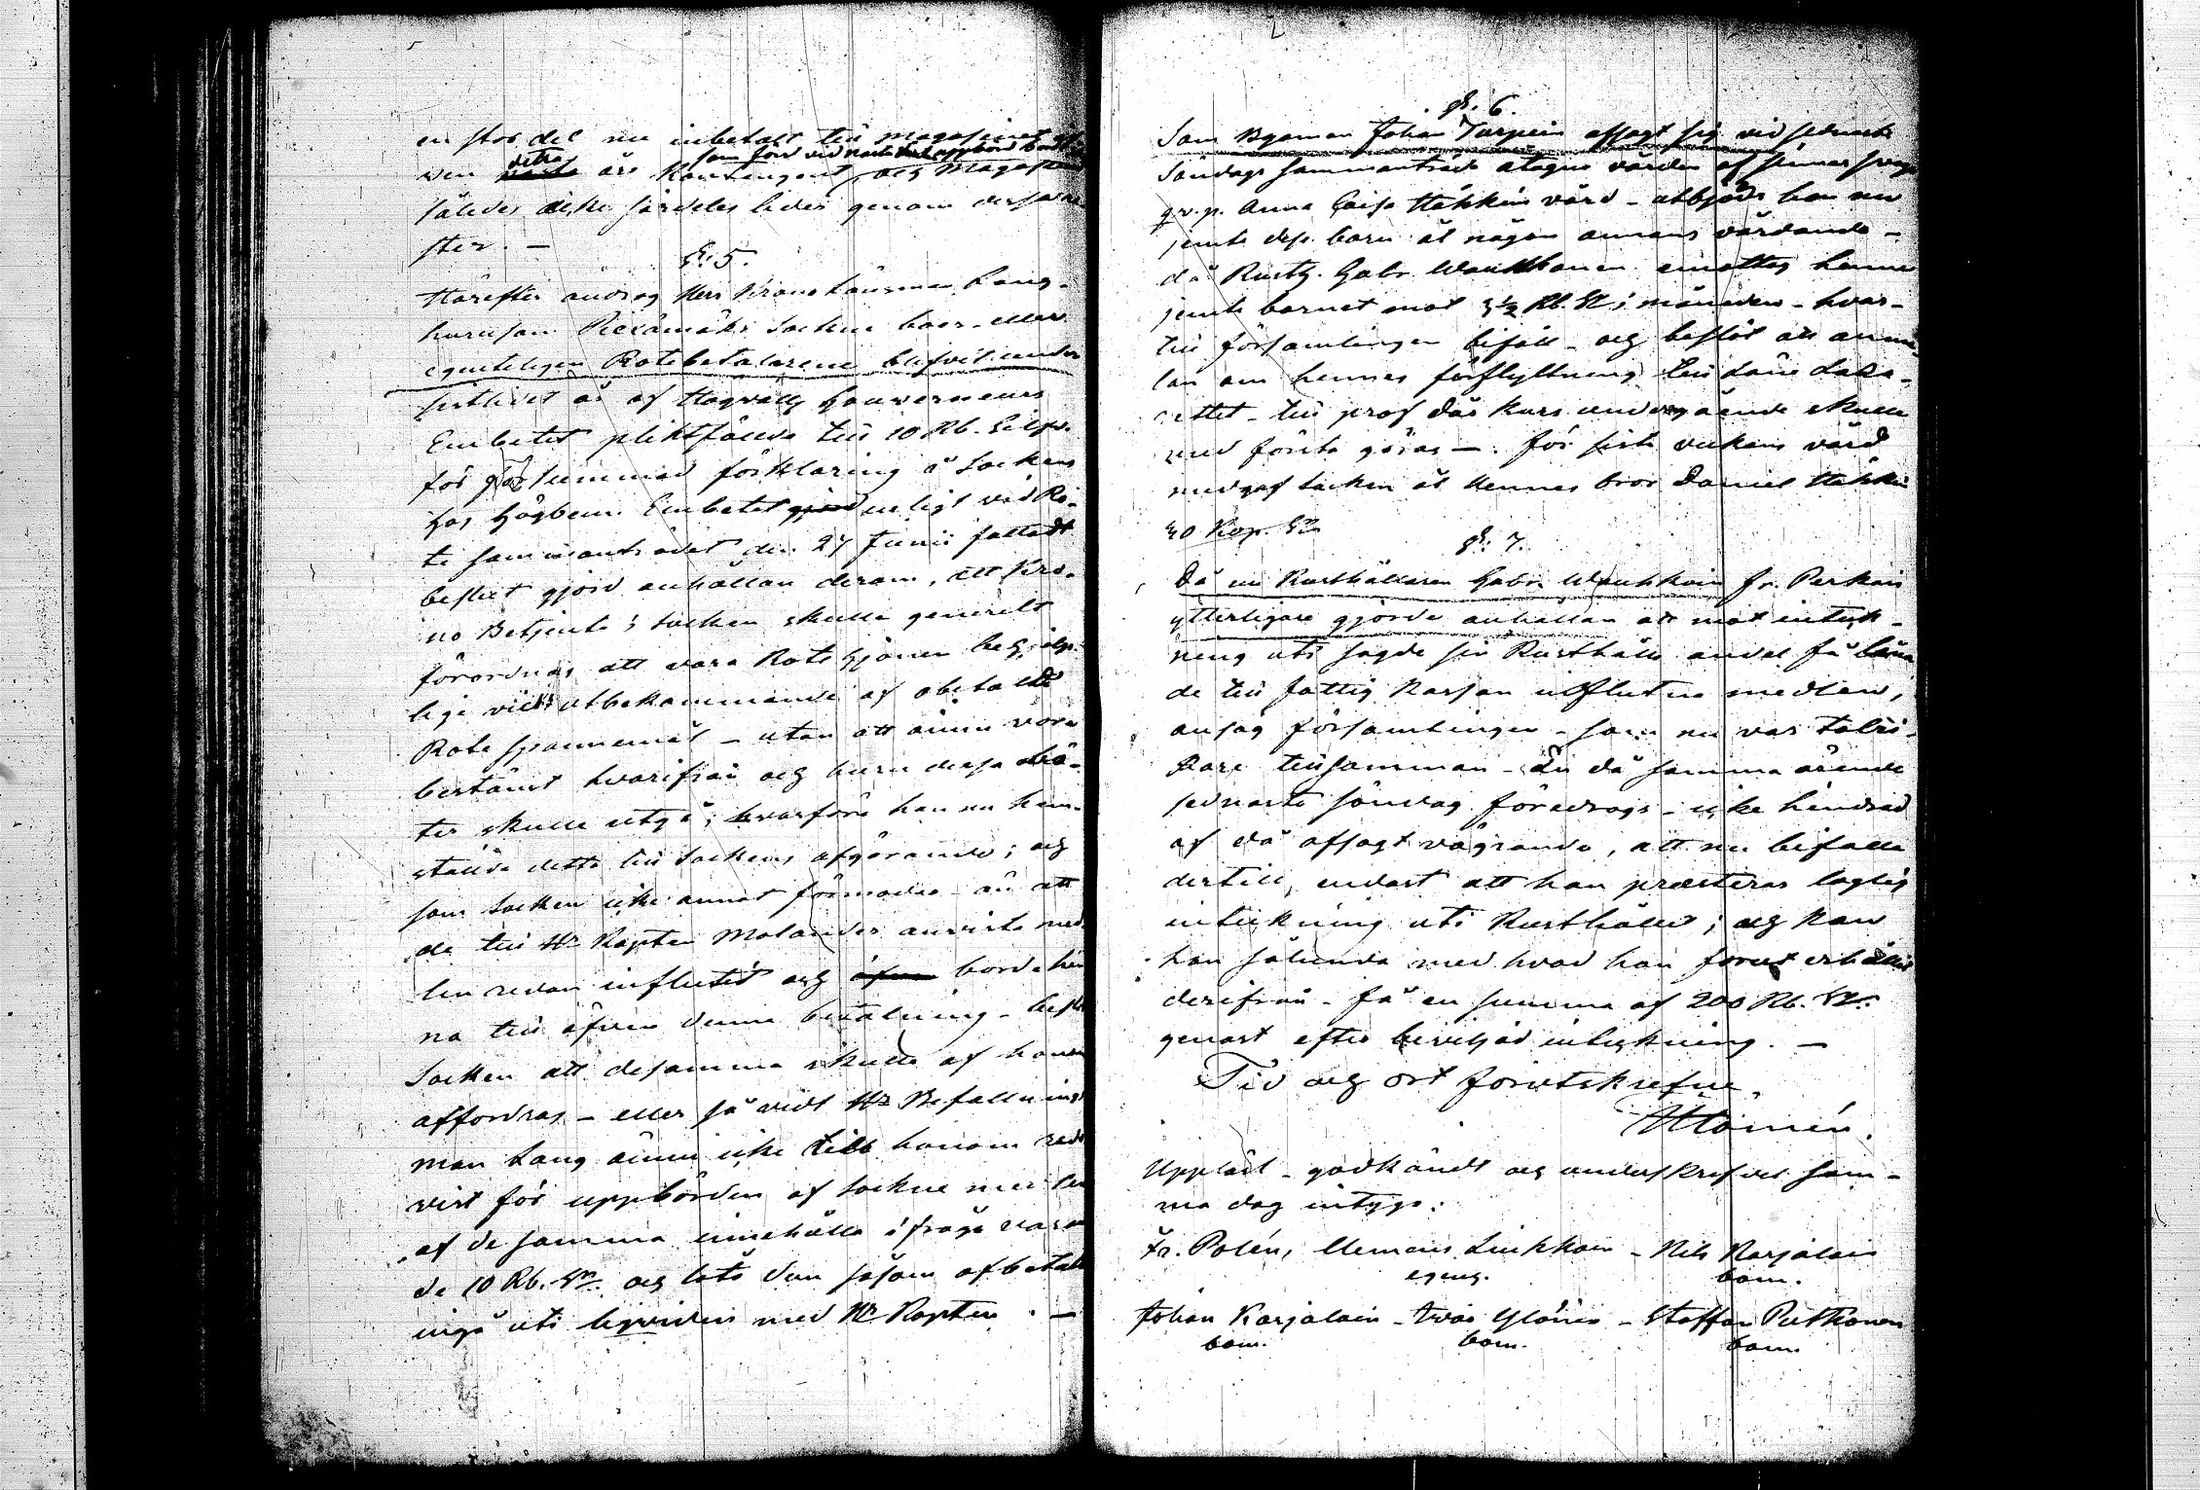 en stor del nu inbetalt till magasinet
detra som förd vid nästa uppbörd
wen års Kontingent, och Magasin
således icke särdeles lider genom dess
ster. —
§. 5.
Härefter androg Herr Krono Länsman Lang
huru som Piexämäki Socken boer eller
egenteligen Rotebetalarene blifvit under
sistlidet år af Högvällg Gouverneurs
Embetet pliktfälde till 10 Rb. Silfr.
för försummad förklaring å Sockens
hos Högbem. Embetet enligt vid Ro-
te sammanträdet den 27 Junii fattadt
beslut gjord anhållan derom, att Kro-
no Betjente i Socken skulle generelt
förordnas att vara Rote hjonen behjelp-
lige vid utbekommande af obetalde
Rote spannemål – utan att ännu vore
bestämt hvarifrån och huru dessa bö-
ter skulle utgå; hvarföre han nu hem-
stälde detta till Sockens afgörande; och
som Socken icke annat förmodde än att
de till Hr Kapten Molander anviste med
len redan influtit och borde hin
na till äfven denna betalning – beslöt
Socken att desamma skulle af honom
affordras – eller så vidt Hr Befallnings
man Lang ännu icke till honom redo
vist för uppbörden af Sockne medlen
af de samma innehålla i fråga varan
de 10 Rb. Sr. och låta dem såsom afbetalt
ingå uti liqviden med Hr Kapten. —
§. 6.
Som Byaman Johan Turpein afsagt sig vid sednaste
Söndags sammanträde åtagne vården af sinnes svaga
qv.p. Anna Caisa Häkkins vård – utbjöds hon nu
jemte dess barn åt någon annans vårdande –
då Rusth. Gabr. Waukhonen emottog henne
jemte barnet mot 3½ Rb. Sr i månaden – hvar-
till församlingen biföll – och beslöt att anmä
lan om hennes förflyttning till Läns Laza-
rettet – till prof där kurs undergående skulle
med första göras —. För sista veckans vård
medgaf Socken åt hennes bror Daniel Häkkin
40 Kop. Sr.
§. 7.
Då nu Rusthållaren Gabr. Waukhoin fr. Perkais
ytterligare gjorde anhållan att mot inteck-
ning uti sagde sin Rusthålls andel få låna
de till Fattig Kassan influtne medlen,
ansåg församlingen – som nu var talri-
kare tillsamman – än då samma ärende
sednaste söndag föredrogs – icke hindrad
af då afsagt vägrande, att nu bifalla
dertill, endast att han præsterar laglig
inteckning uti Rusthållet; och kan
han sålunda med hvad han förut erhållit
derifrån – få en summa af 200 Rb. Sr.
genast efter beviljad inteckning. —
Tid och ort förutskrefne.
Uppläst – godkändt och underskrefvet sam-
ma dag intyga:
Fr. Polén, Clemens Linkkoin – Nils Karjalain
egeng. bom.
Johan Karjalain – Ivar Ylöinen – Staffan Putkonen
bom. bom. bom.